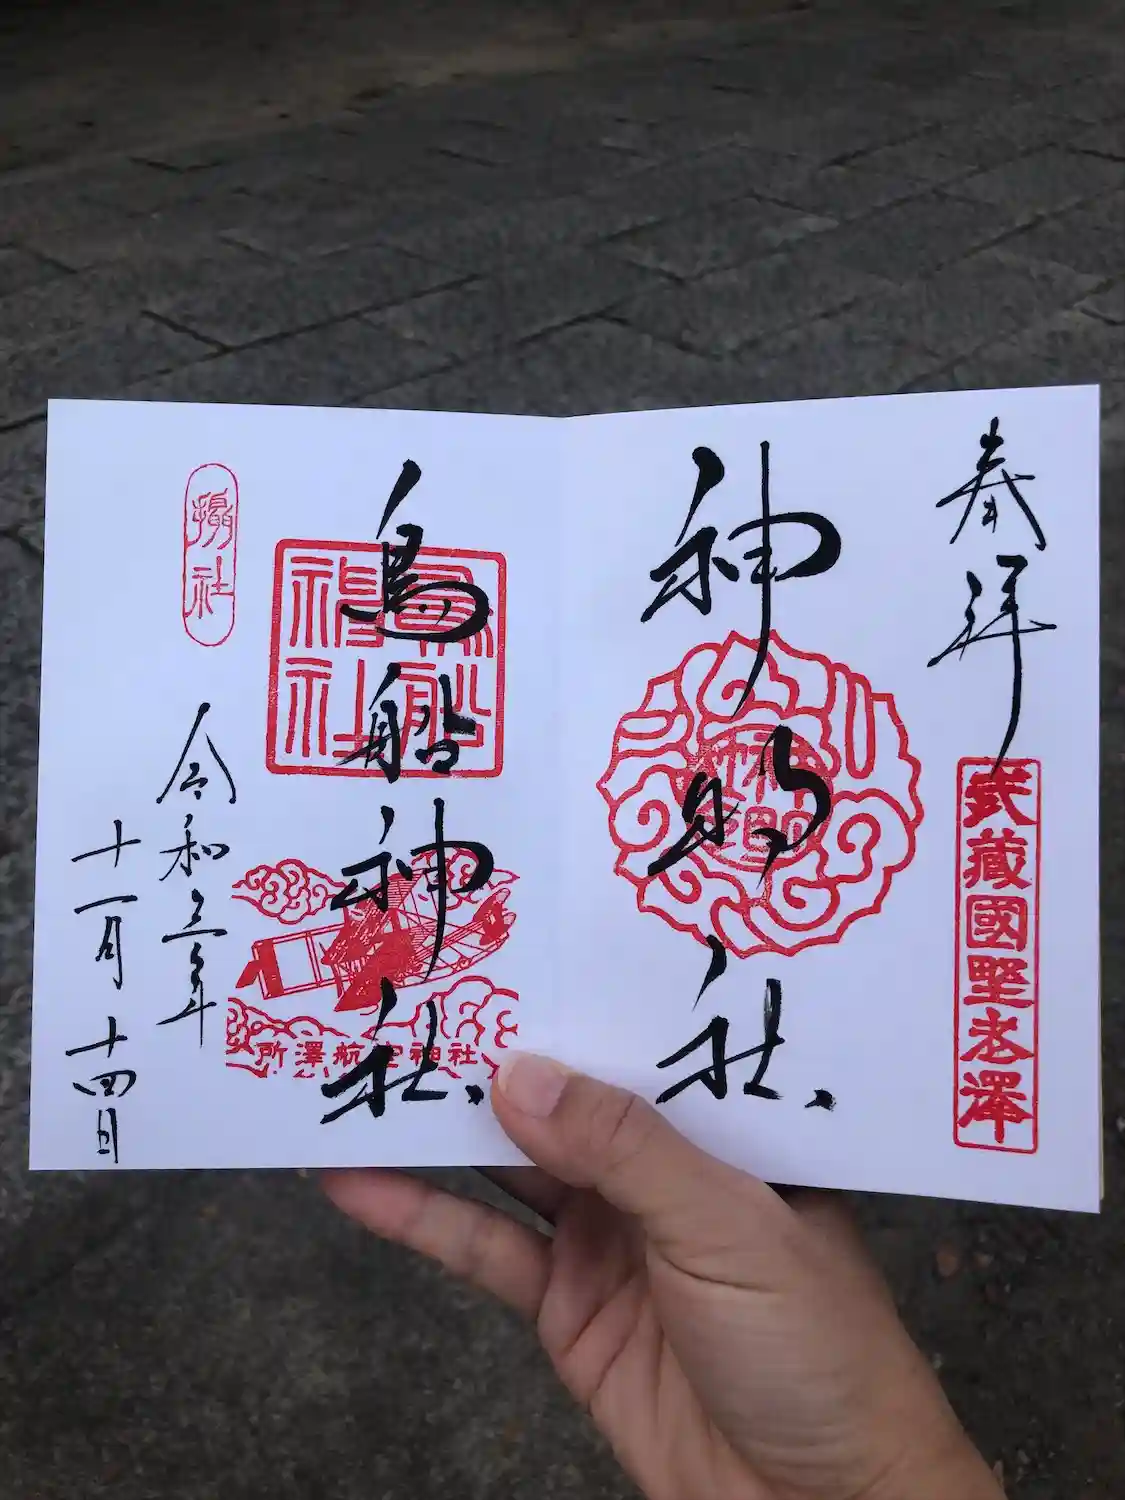 奉拝
武藏國野老澤
神明社
鳥船神社
鳥船
神社
所澤航空神社
攝社
令和三年
十一月十四日